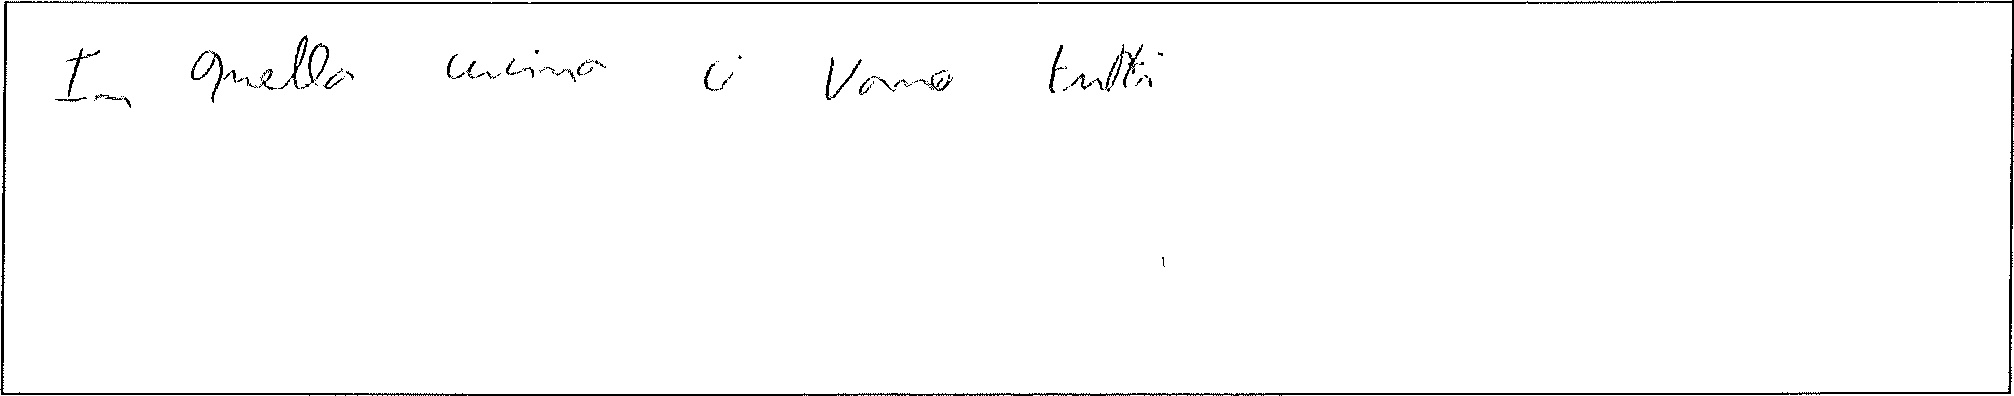 In quella cucina ci vano tutti